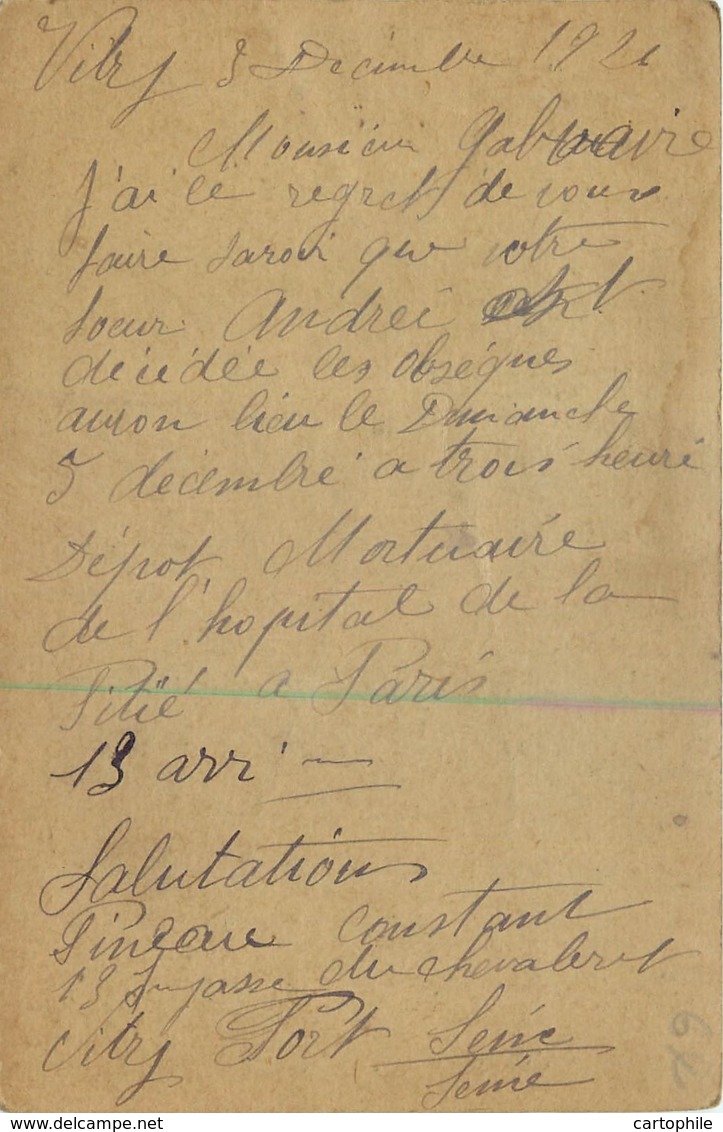 Vitry 3 Décembre 192
Monsieur
J'ai le regret de vous
faire savoir que votre
soeur Andreé est
décédée les obsèques
auron lieu le Dimanche
5 décembre a trois heure
Dépot Mortuaire
de l'hopital de la
Pitié a Paris
13 arri
Salutations
Pineau Constant
13 Impasse du Chevaleret
Vitry Port Seine
Seine
62
cartophile